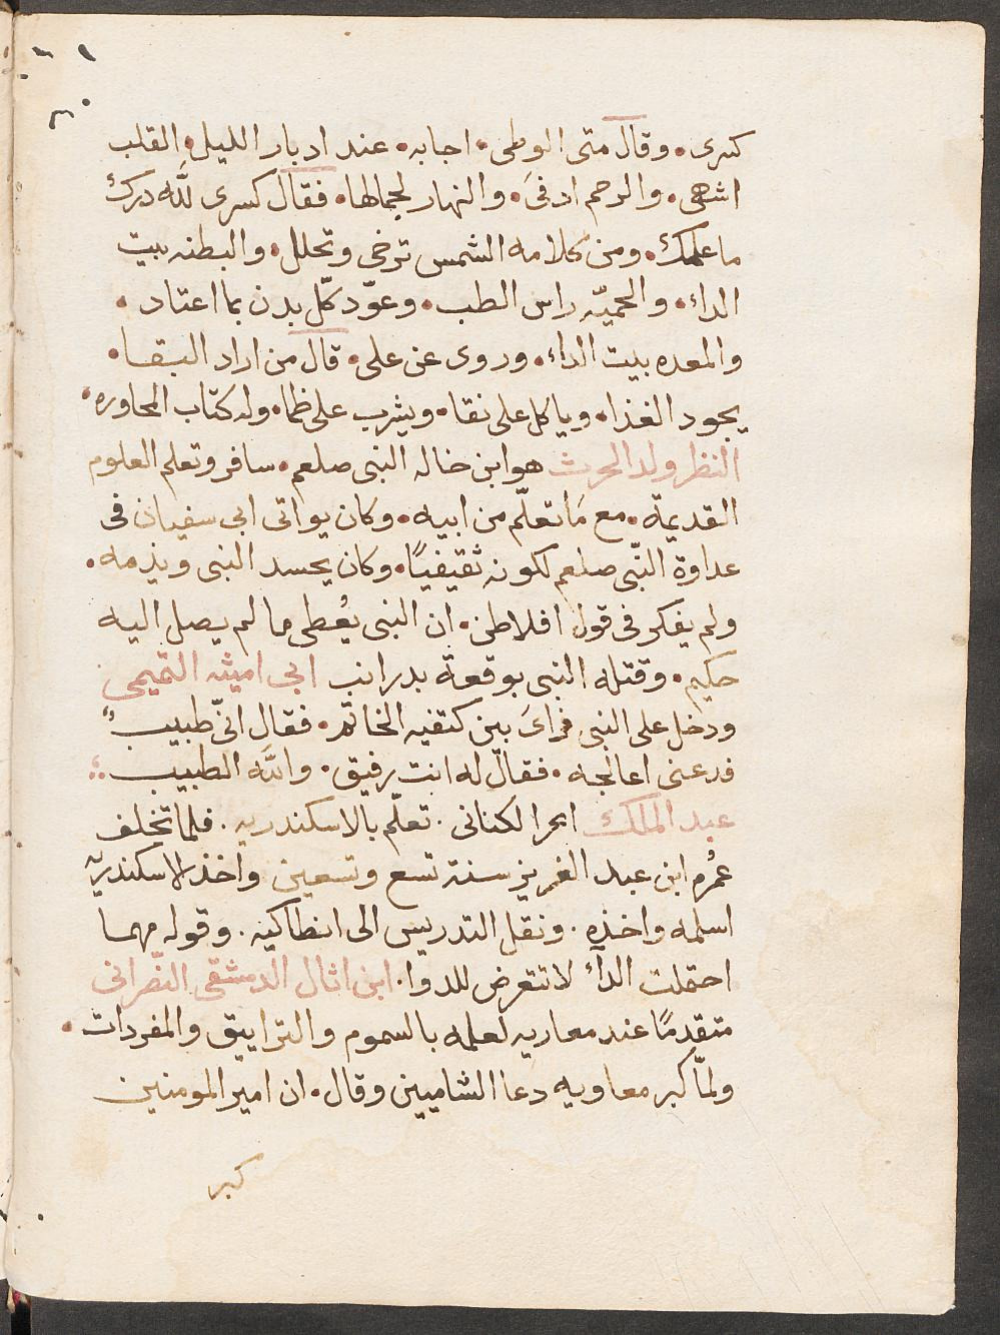 كسرى • وقال متى الوطى • اجابه • عند ادبار الليل • القلب
اشهى • والرحم ادفىَ • والنهار لجمالها • فقال كسرى لله درك
ما علمك • ومن كلامه الشمس ترخى وتحلل • والبطنه بيت
الداء • والحميّه راس الطب • وعوّد كلّ بدن بما اعتاد •
والمعده بيت الداء • وروى عن على • قال من اراد البقا •
يجود الغذا • وياكل على نقا • ويشرب على ظما • وله كتاب المحاوره •
النظر ولد الحرث هو ابن خاله النبى صلعم • سافر وتعلم العلوم
القديمة • مع مَا تعلّم من ابيه • وكان يواتى ابى سفيان فى
عداوة النّبى صلعم لكونه ثقيفيًا • وكان يحسد النبى ويذمه •
ولم يفكر فى قول افلاطن • ان النبى يُعطى ما لم يصل اليه
حكيم • وقتله النبى بوقعة بدر ابى امیثه التميمى
ودخل على النبى فراىَ بين كتفيه الخاتم • فقال انّى طبيبٌ
فدعنى اعالجه • فقال له انت رفيق • والله الطبيب
عبد الملك ابحر الكنانى • تعلّم بالاسكندريه • فلما تخلف
عُمر ابن عبد العزيز سنة تسع وتسعين واخذ الاسكندريّه
اسلمه واخذه • ونقل التدريس الى انطاكيه • وقوله مهما
احتملت الداء لا تتعرض للدوا • ابن اثال الدمشقى النّصرانى
متقدمًا عند معاويه لعلمه بالسموم والتراييق والمفردات •
ولمّا كبر معاويه دعا الشاميين وقال • ان امير المومنين
كبر